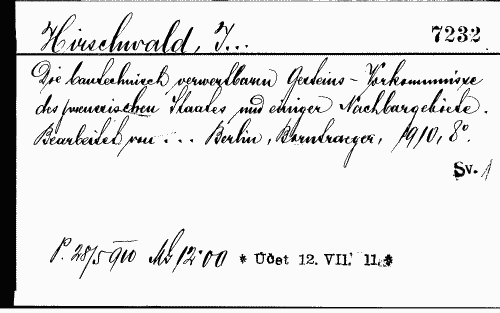 Hirschwald, J... 7232
Die bautechnisch verwertbaren Gesteins-Vorkommnisse
des preussischen Staates und einiger Nachbargebiete.
Bearbeitet von ... Berlin, Borntraeger, 1910, 8°.
Sv. 1
P. 28/5 910 M 12·00 * Účet 12. VII. 11. *